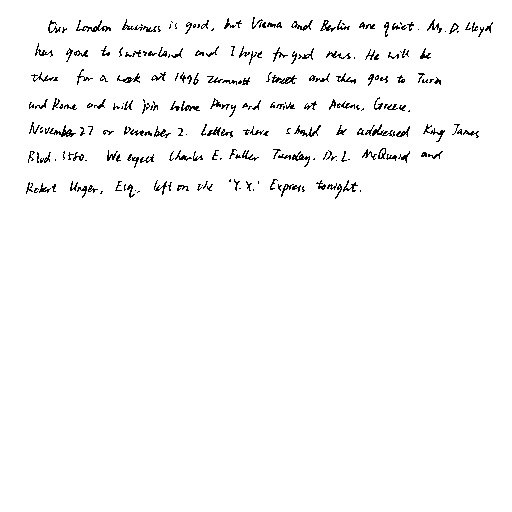 Our London business is good, but Vienna and Berlin are quiet. Mr. D. Lloyd
has gone to Switzerland and I hope for good news. He will be
there for a week at 1496 Zermott Street and then goes to Turin
and Rome and will join Colone Parry and arrive at Athens, Greece,
November 27 or December 2. Letters there should be addressed King James
Blvd. 3580. We expect Charles E. Fuller Tuesday. Dr. L. McQuaid and
Robert Unger, Esq., left on the 'Y.X.' Express tonight.